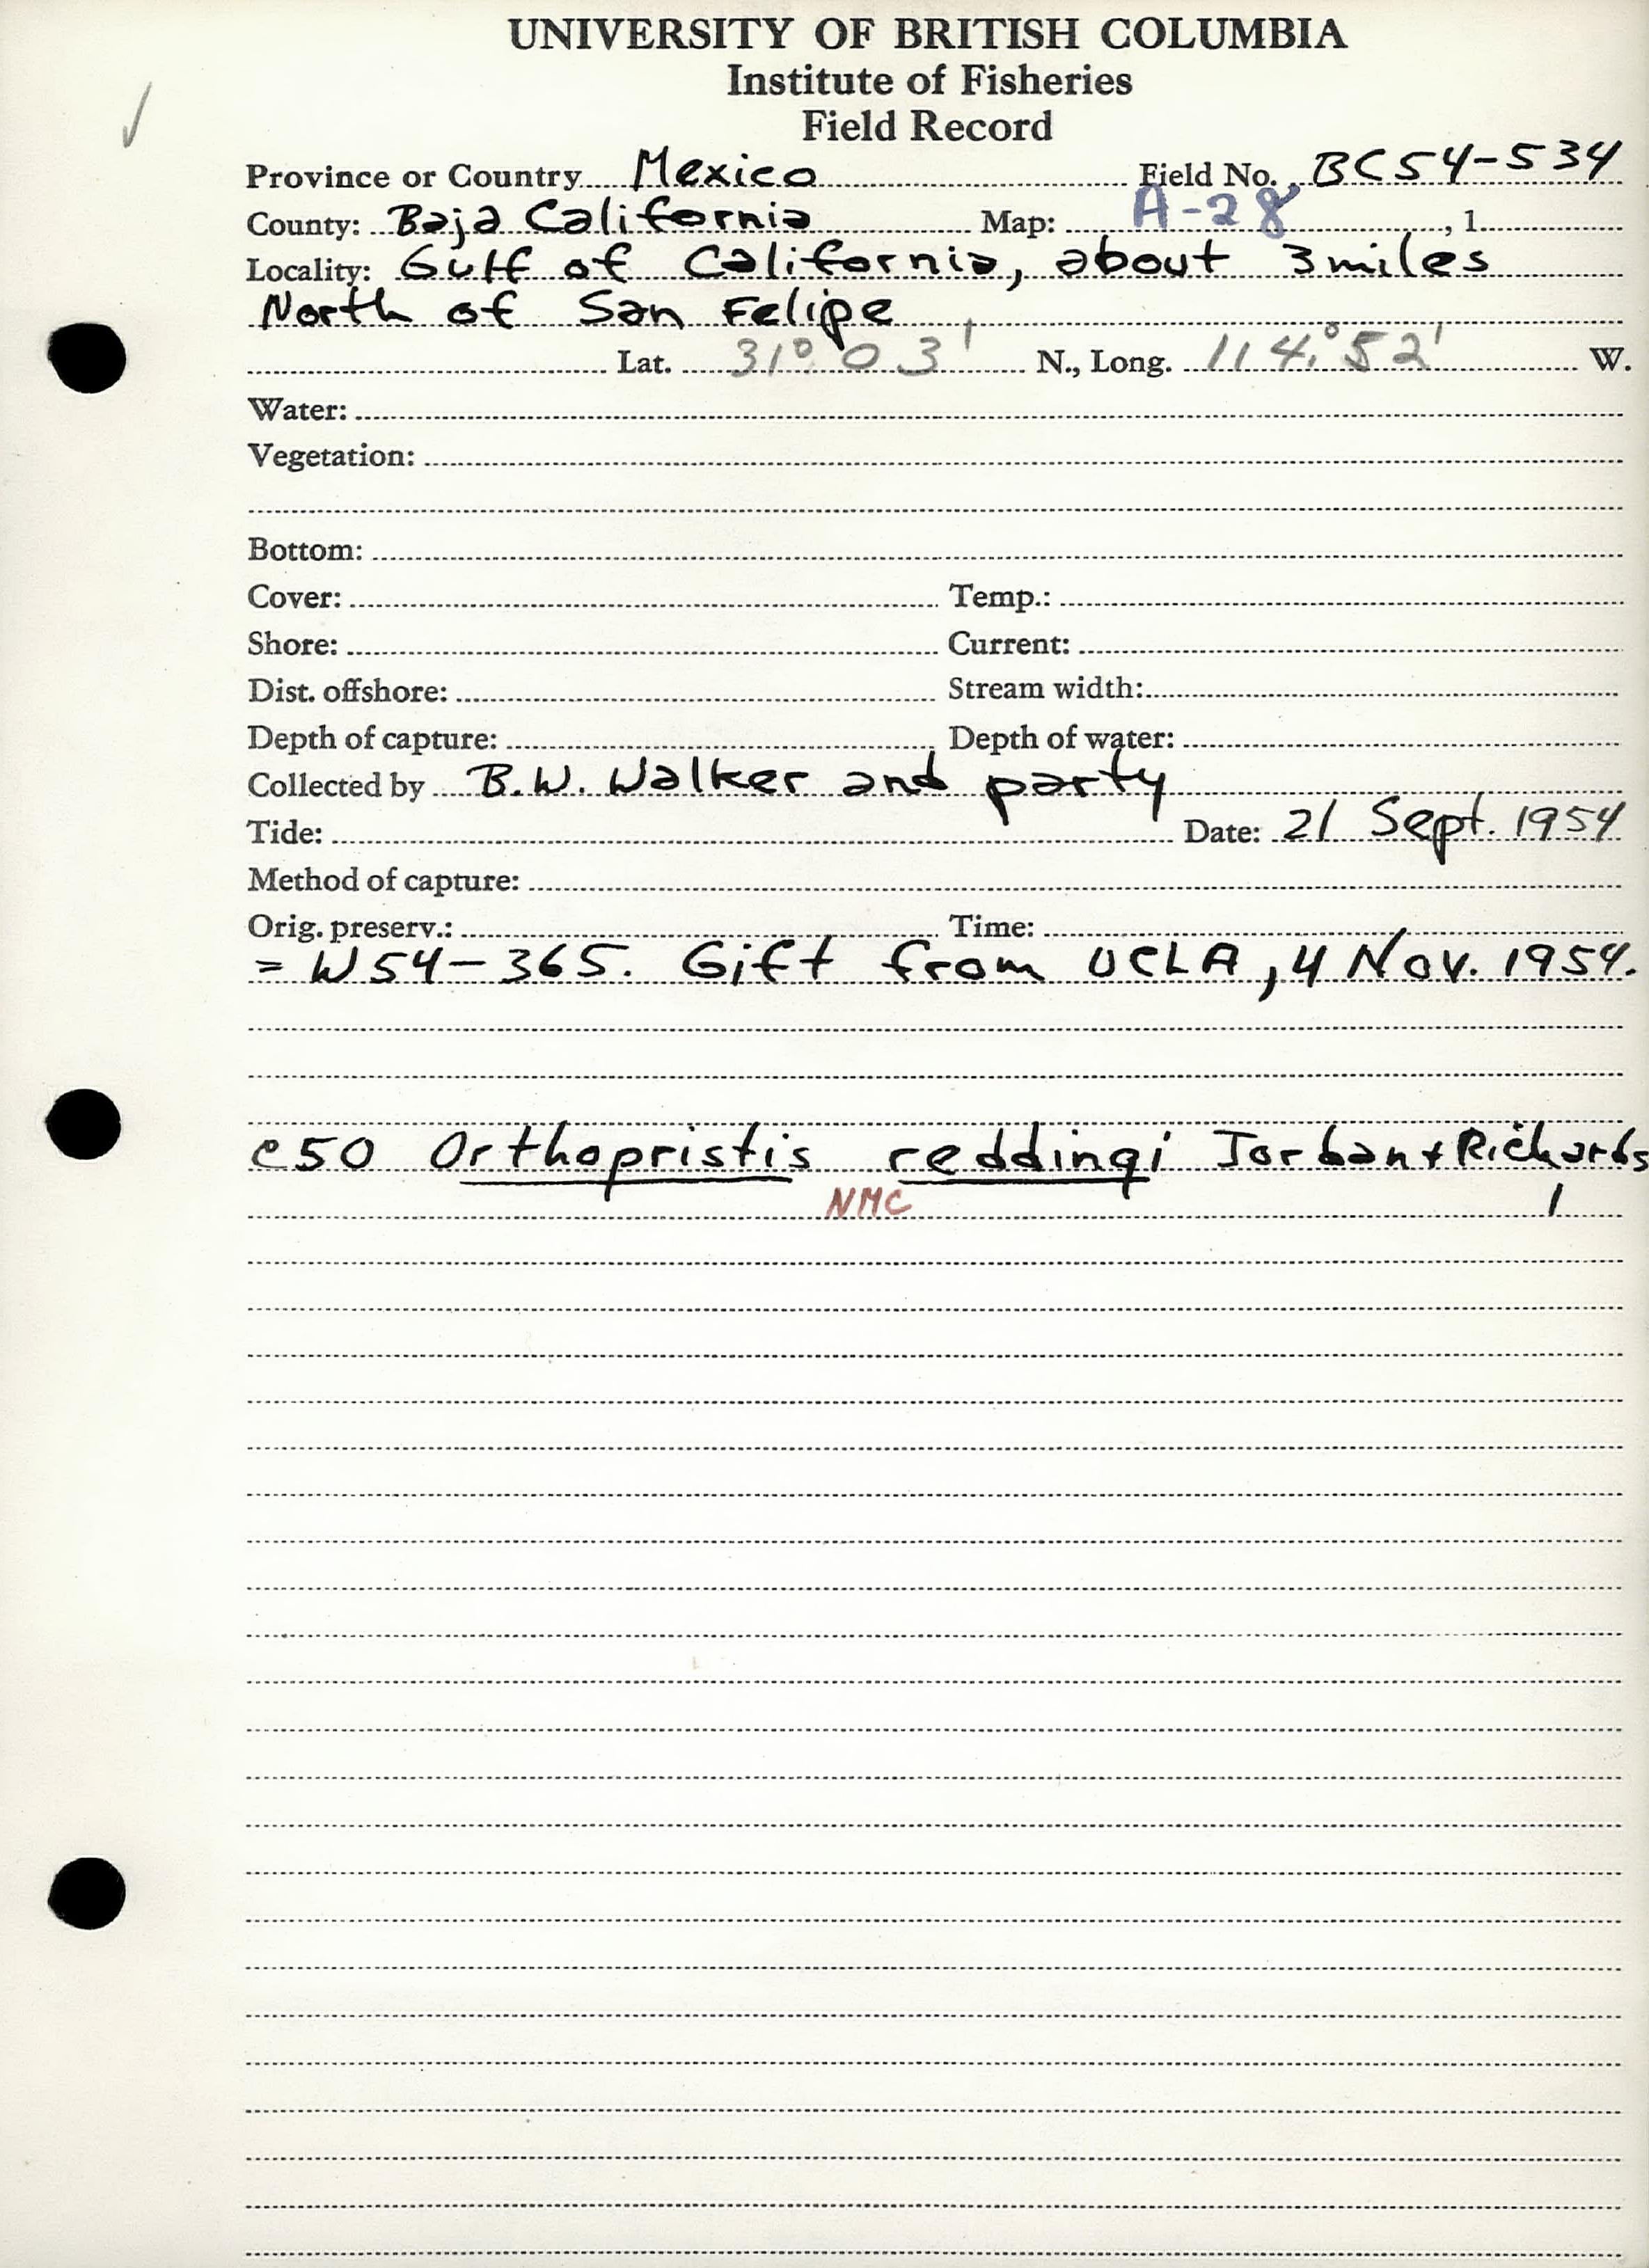 UNIVERSITY OF BRITISH COLUMBIA
Institute of Fisheries
Field Record
Province or Country Mexico Field No. BC54-534
County: Baja California Map: A-28, 1
Locality: Gulf of California, about 3 miles
North of San Felipe
Lat. 31° 03' N., Long. 114° 52' W.
Water:
Vegetation:
Bottom:
Cover: Temp.:
Shore: Current:
Dist. offshore: Stream width:
Depth of capture: Depth of water:
Collected by B.W. Walker and party
Tide: Date: 21 Sept. 1954
Method of capture:
Orig. preserv.: Time:
= W54-365. Gift from UCLA, 4 Nov. 1954.
c50 Orthopristis reddingi Jordan + Richards
NMC 1